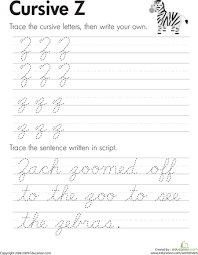 Cursive Z
Trace the cursive letters, then write your own.
Z Z Z
Z Z Z
z z z
z z z
Trace the sentence written in script.
Zach zoomed off
to the zoo to see
the zebras.